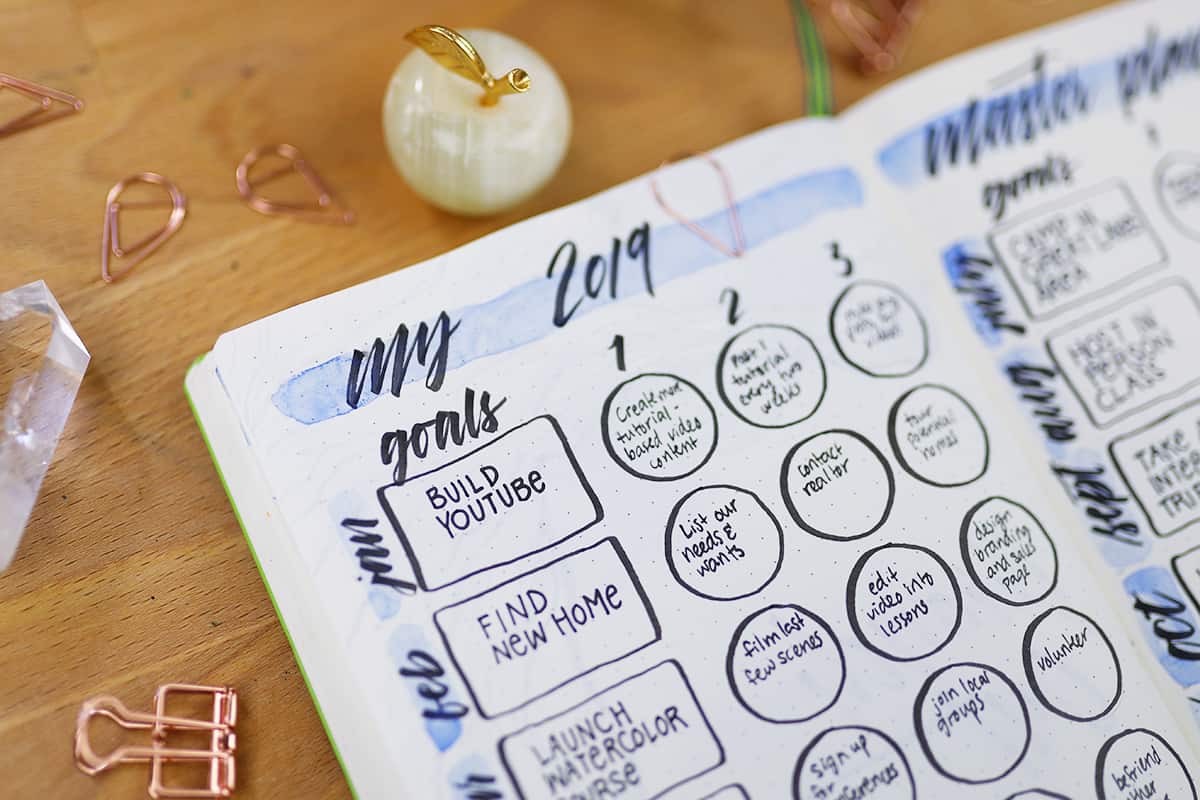 my 2019
master plan
goals
1
2
3
jan
BUILD
YOUTUBE
Create more
tutorial-
based video
content
Post 1
tutorial
every two
weeks
feb
FIND
NEW HOME
List our
needs &
wants
contact
realtor
tour
potential
homes
LAUNCH
WATERCOLOR
COURSE
film last
few scenes
edit
video into
lessons
design
branding
and sales
page
sign up
for
conferences
join local
groups
volunteer
befriend
goals
july
CAMP IN
AREA
aug
HOST IN
PERSON
CLASS
sept
TAKE
oct